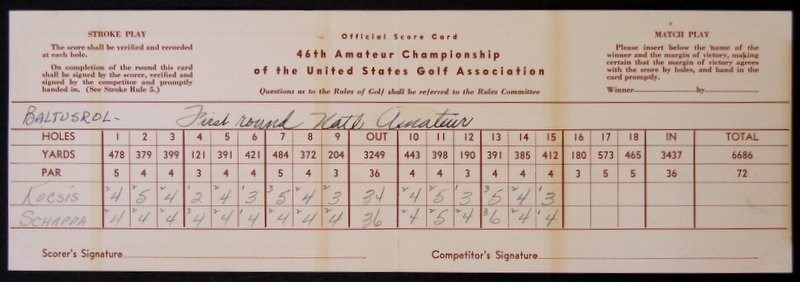 STROKE PLAY
The score shall be verified and recorded
at each hole.
On completion of the round this card
shall be signed by the scorer, verified and
signed by the competitor and promptly
handed in. (See Stroke Rule 5.)
Official Score Card
46th Amateur Championship
of the United States Golf Association
Questions as to the Rules of Golf shall be referred to the Rules Committee
MATCH PLAY
Please insert below the name of the
winner and the margin of victory, making
certain that the margin of victory agrees
with the score by holes, and hand in the
card promptly.
Winner by
BALTUSROL - First round Natl Amateur
HOLES 1 2 3 4 5 6 7 8 9 OUT 10 11 12 13 14 15 16 17 18 IN TOTAL
YARDS 478 379 399 121 391 421 484 372 204 3249 443 398 190 391 385 412 180 573 465 3437 6686
PAR 5 4 4 3 4 4 5 4 3 36 4 4 3 4 4 4 3 5 5 36 72
Kocsis 4 5 4 2 4 3 5 4 3 34 4 5 3 5 4 3
SCHAPPA 4 4 4 4 4 4 4 4 4 36 4 5 4 6 4 4
Scorer's Signature Competitor's Signature